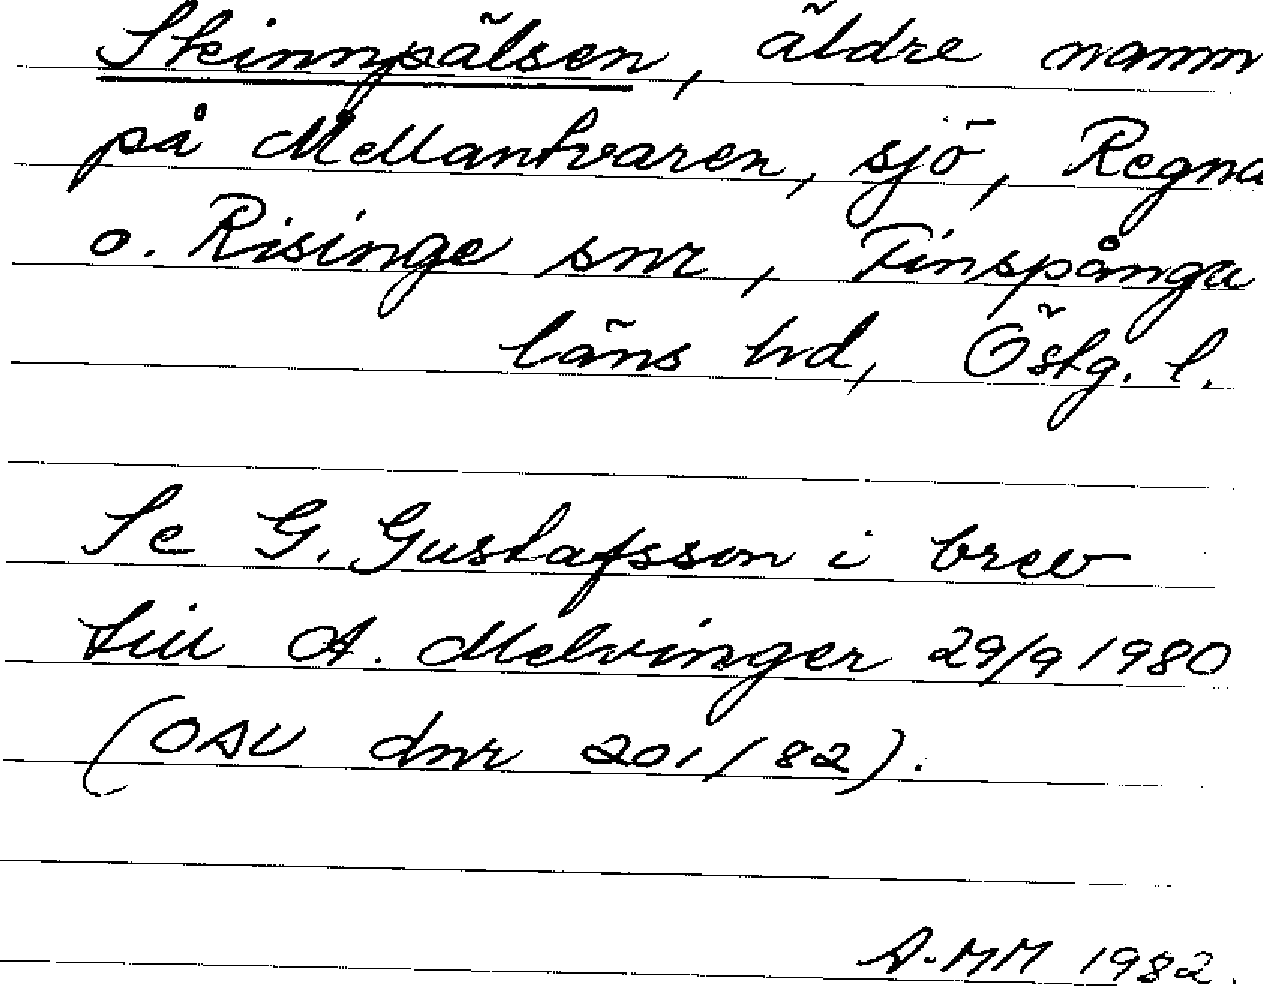 Skinnpälsen, äldre namn
på Mellantvaren, sjö, Regna
o. Risinge snr, Finspånga
läns hd, Östg. l.
Se G. Gustafsson i brev
till A. Melvinger 29/9 1980
(OAU dnr 201/82).
A.MM 1982.